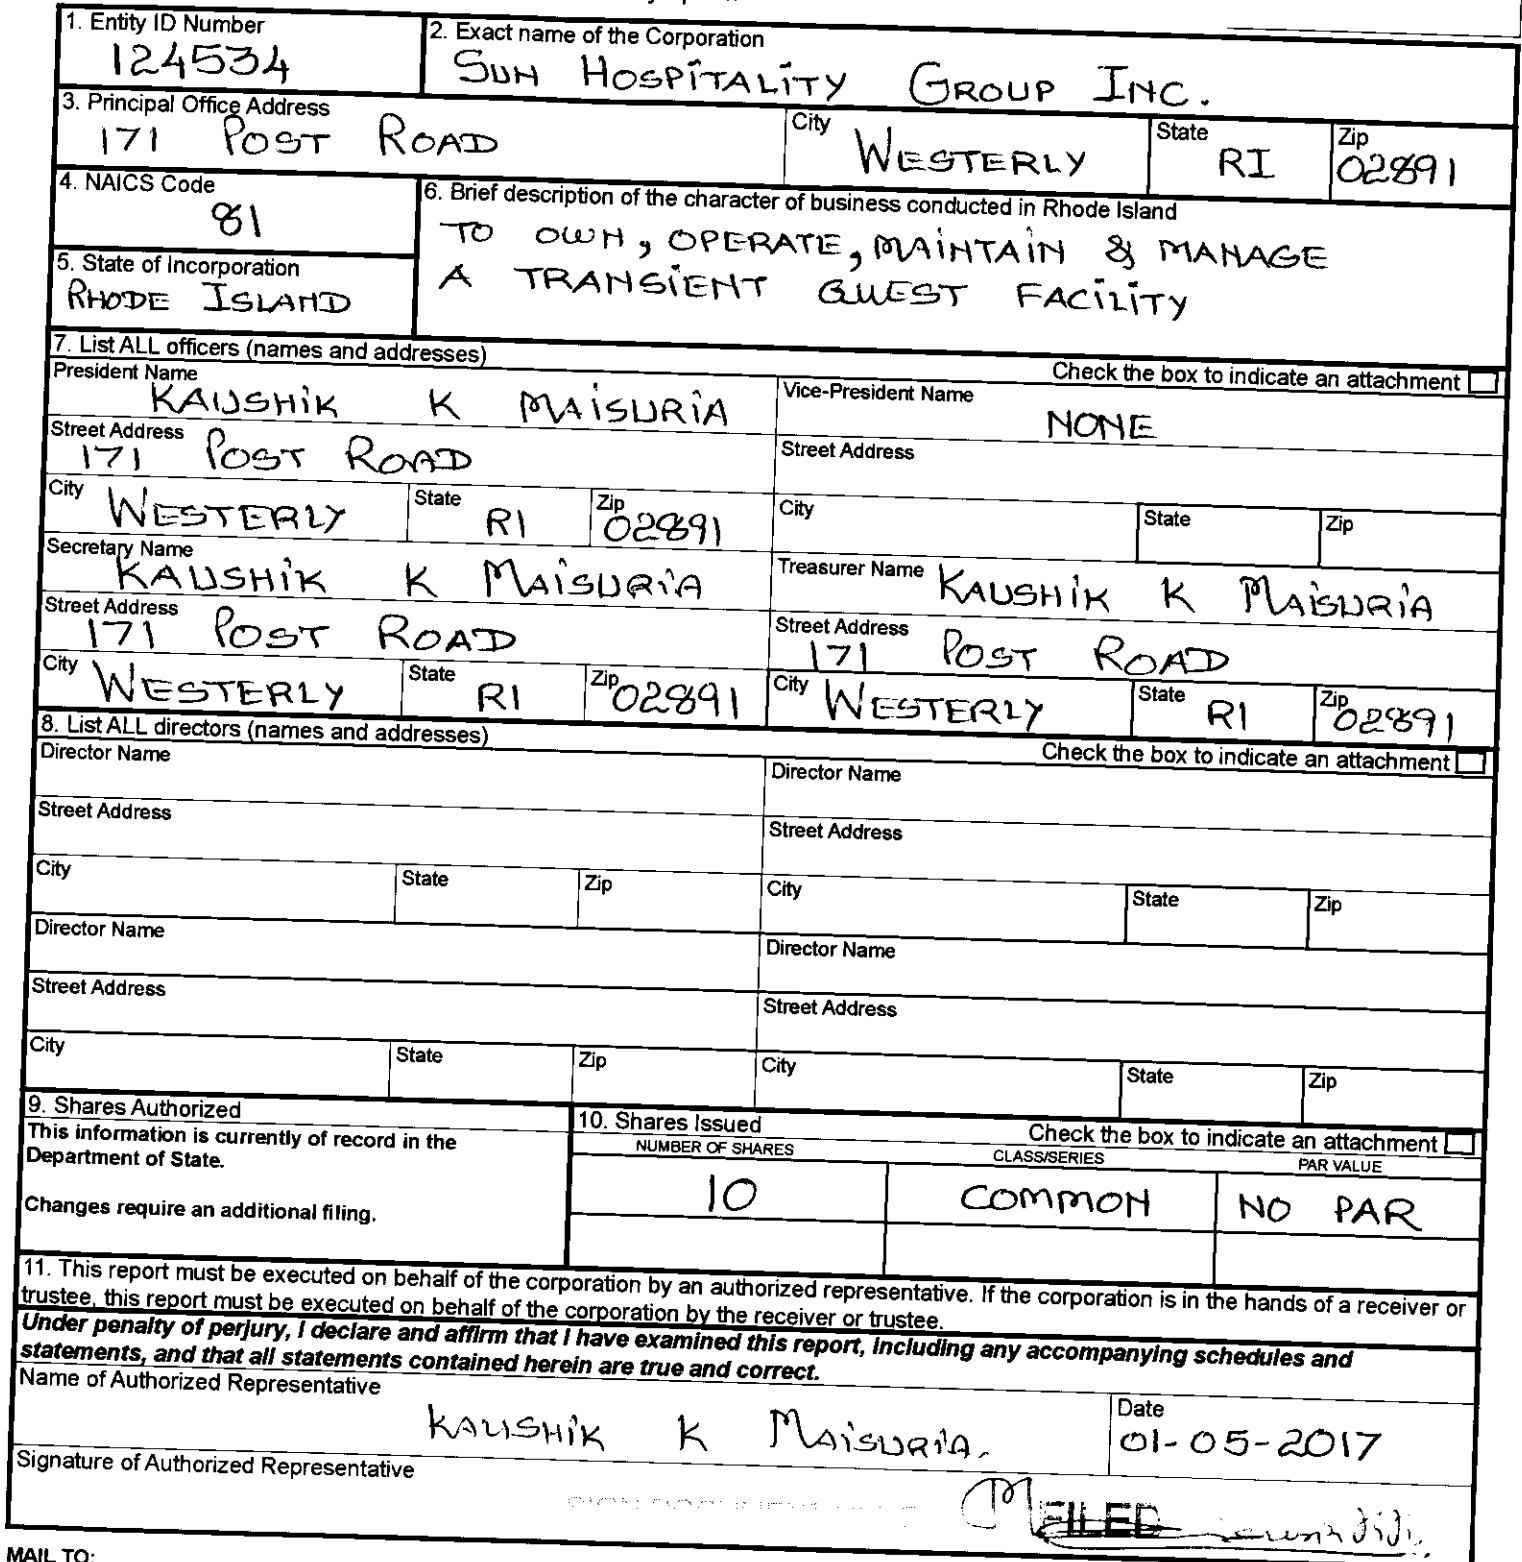 1. Entity ID Number
124534
2. Exact name of the Corporation
SUN HOSPITALITY GROUP INC.
3. Principal Office Address
171 POST ROAD
City
WESTERLY
State
RI
Zip
02891
4. NAICS Code
81
5. State of Incorporation
RHODE ISLAND
6. Brief description of the character of business conducted in Rhode Island
TO OWN, OPERATE, MAINTAIN & MANAGE
A TRANSIENT GUEST FACILITY
7. List ALL officers (names and addresses)
Check the box to indicate an attachment
President Name
KAUSHIK K MAISURIA
Vice-President Name
NONE
Street Address
171 POST ROAD
Street Address
City
WESTERLY
State
RI
Zip
02891
City
State
Zip
Secretary Name
KAUSHIK K MAISURIA
Treasurer Name
KAUSHIK K MAISURIA
Street Address
171 POST ROAD
Street Address
171 POST ROAD
City
WESTERLY
State
RI
Zip
02891
City
WESTERLY
State
RI
Zip
02891
8. List ALL directors (names and addresses)
Check the box to indicate an attachment
Director Name
Director Name
Street Address
Street Address
City
State
Zip
City
State
Zip
Director Name
Director Name
Street Address
Street Address
City
State
Zip
City
State
Zip
9. Shares Authorized
This information is currently of record in the
Department of State.
Changes require an additional filing.
10. Shares Issued
Check the box to indicate an attachment
NUMBER OF SHARES
CLASS/SERIES
PAR VALUE
10
COMMON
NO PAR
11. This report must be executed on behalf of the corporation by an authorized representative. If the corporation is in the hands of a receiver or
trustee, this report must be executed on behalf of the corporation by the receiver or trustee.
Under penalty of perjury, I declare and affirm that I have examined this report, including any accompanying schedules and
statements, and that all statements contained herein are true and correct.
Name of Authorized Representative
KAUSHIK K MAISURIA.
Date
01-05-2017
Signature of Authorized Representative
FILED
MAIL TO: